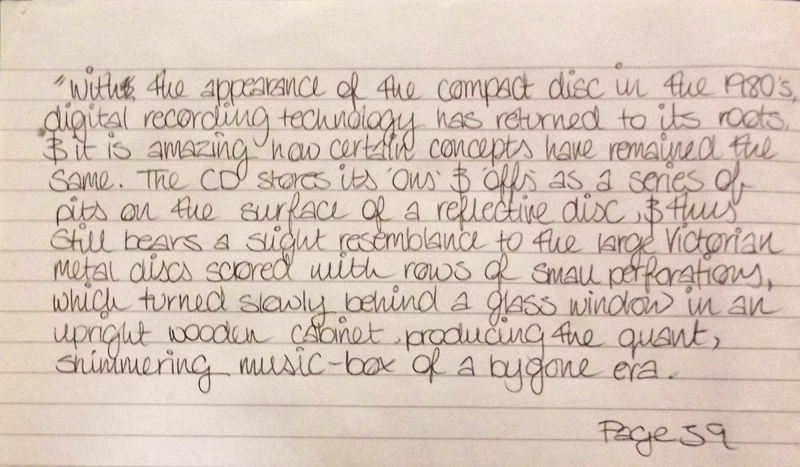 "With the appearance of the compact disc in the 1980's,
digital recording technology has returned to its roots,
& it is amazing how certain concepts have remained the
same. The CD stores its 'ons' & 'offs as a series of
pits on the surface of a reflective disc, & thus
still bears a slight resemblance to the large Victorian
metal discs scored with rows of small perforations,
which turned slowly behind a glass window in an
upright wooden cabinet, producing the quant,
shimmering music-box of a bygone era.
Page 59